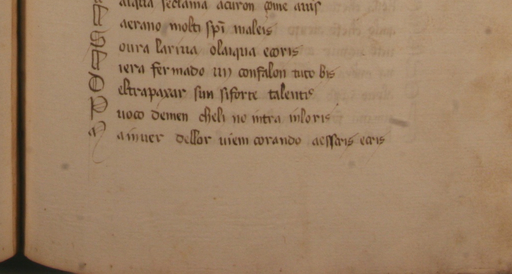 aiqua seclama acuron come aiŭs
T aerano molti spī maleis
S oura lariua olaiqua ecoris
T iera fermado un confalon tuto bis
O eltrapaxar sun siforte talentis
P uoco demen cheli no intra inloris
A ainuer dellor uiem corando aesseris ecris